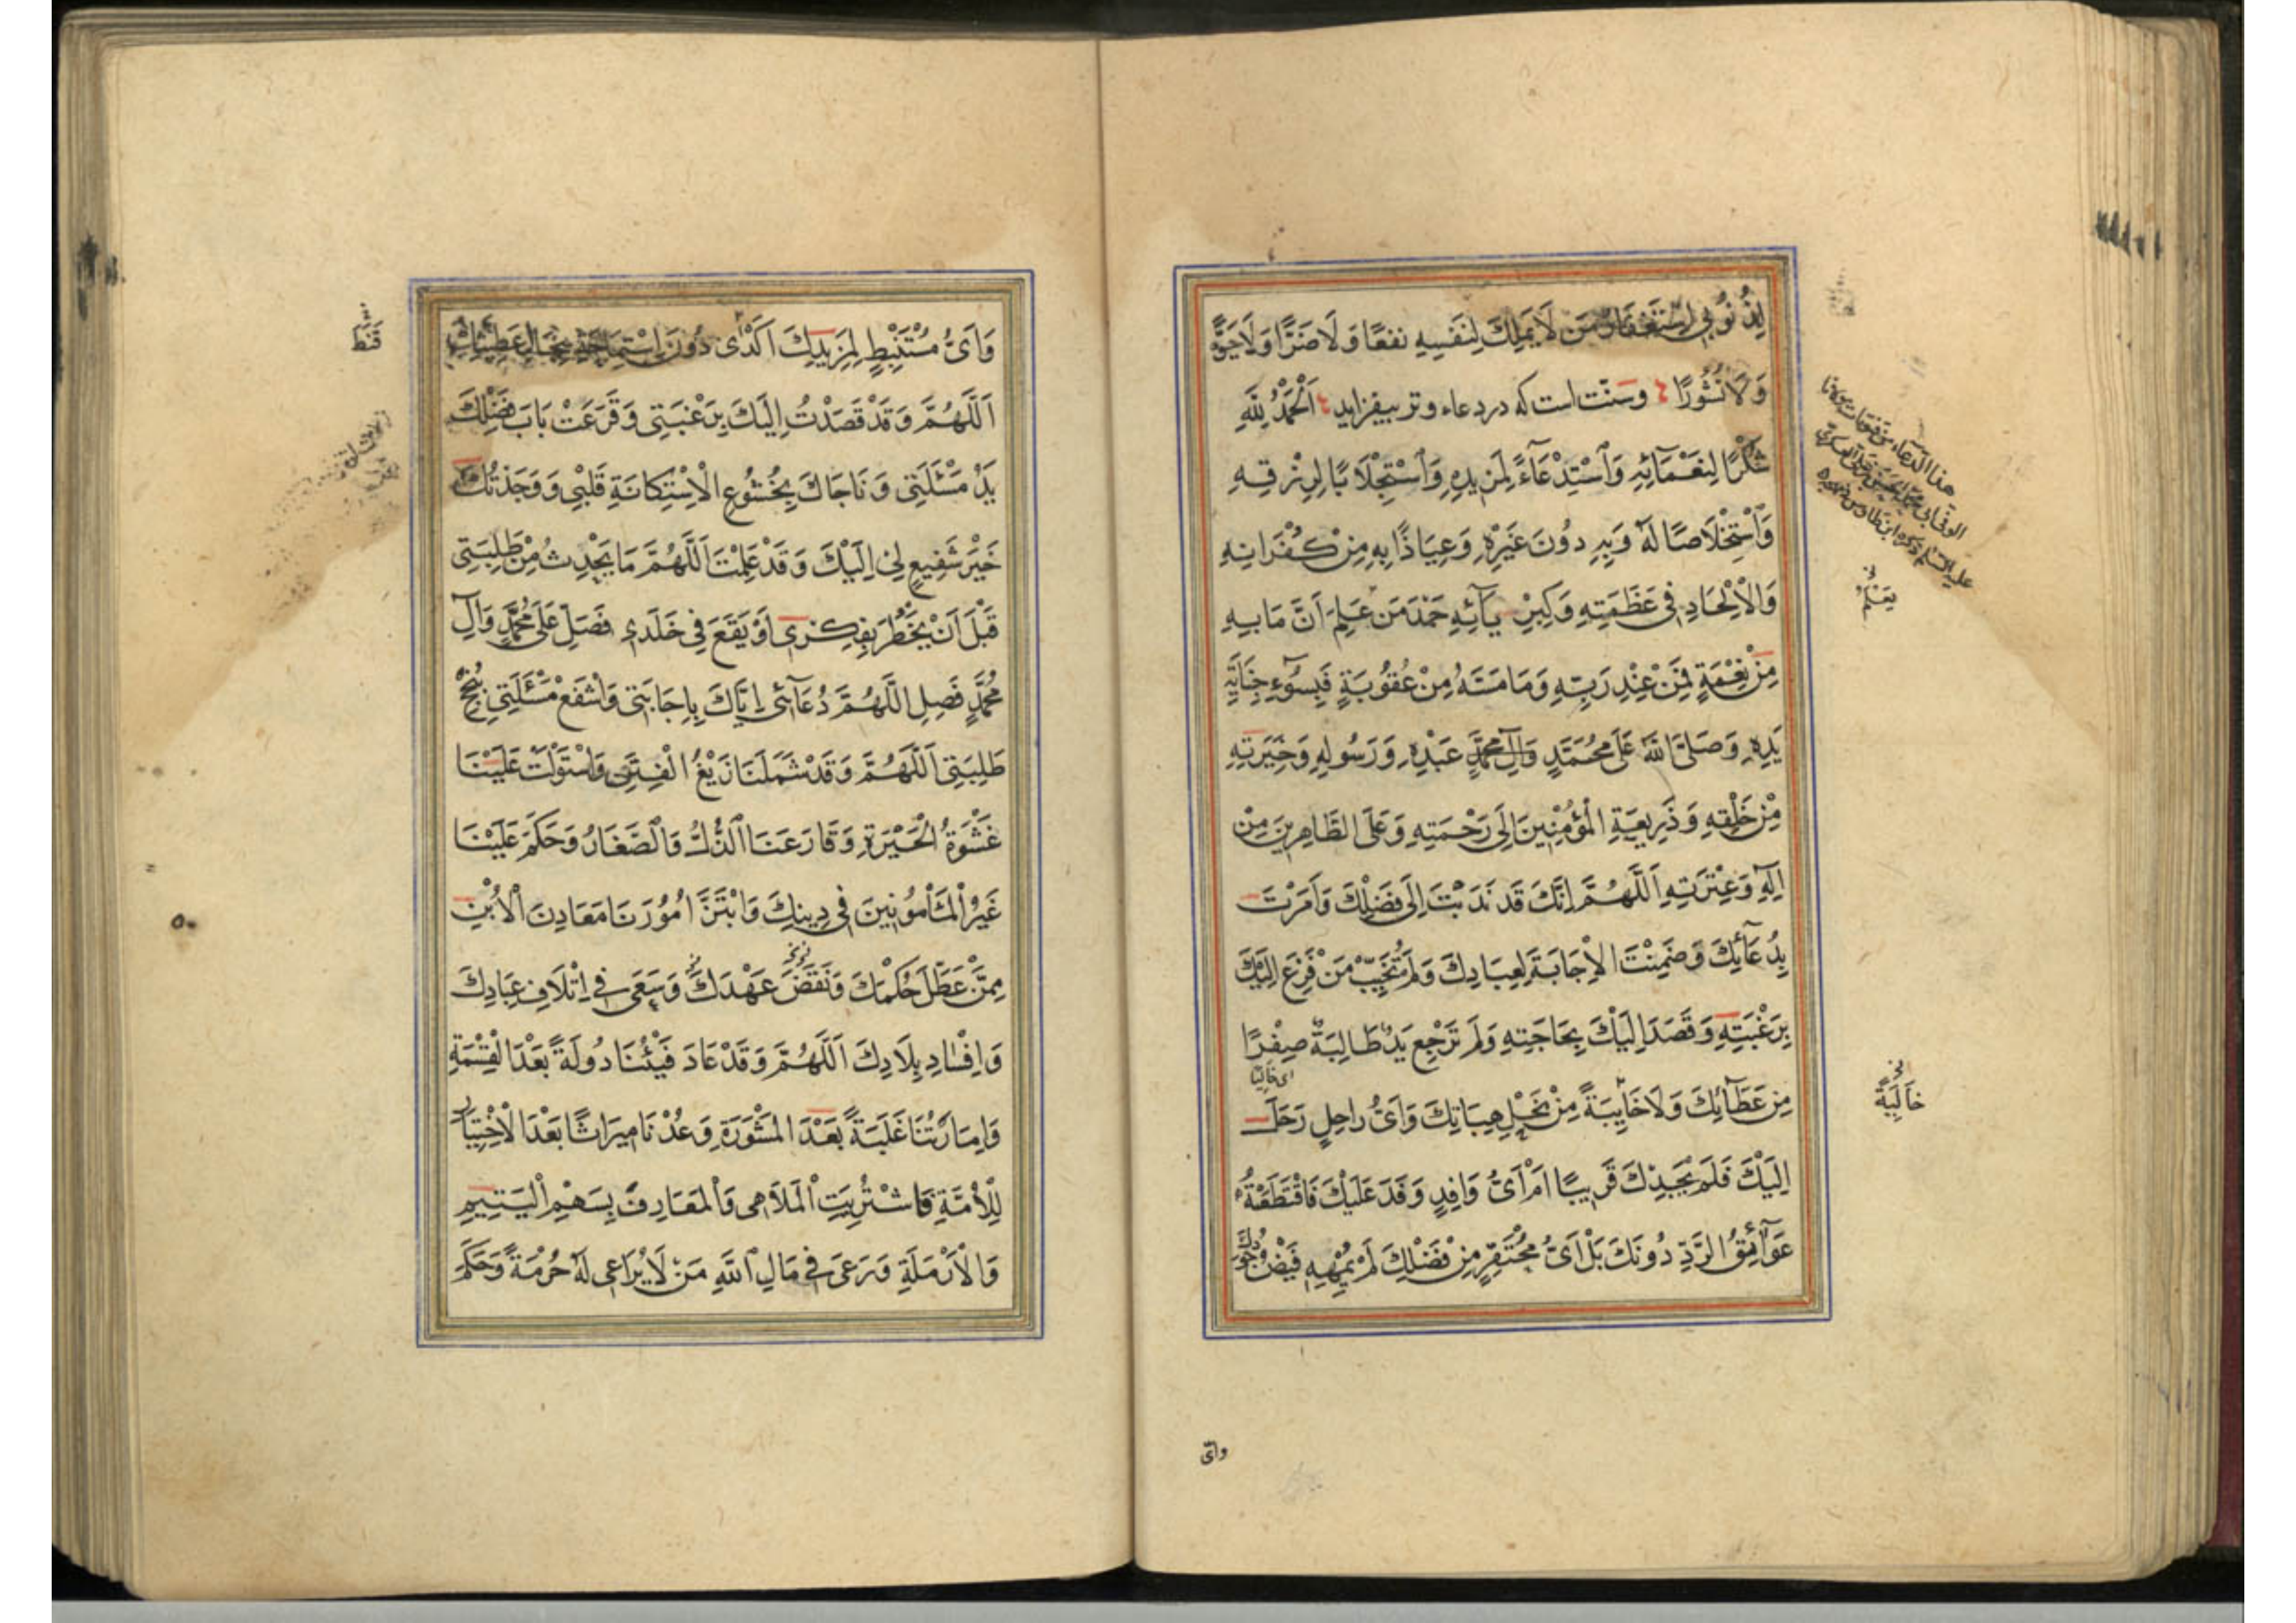 لِذُنُوبِي اسْتِغْفَارَ مَن لَا يَمْلِكُ لِنَفْسِهِ نَفْعًا وَلَا ضَرًّا وَلَا حَيٰوةً
وَلَا نُشُورًا وسنّت است که در دعاء وتر بیفزاید اَلْحَمْدُ لِلّهِ
شُكْرًا لِنَعْمَآئِهِ وَاسْتِدْعَآءً لِمَزِيدِهِ وَاسْتِجْلَابًا لِرِزْقِهِ
وَاسْتِخْلَاصًا لَهُ وَبِهِ دُونَ غَيْرِهِ وَعِيَاذًا بِهِ مِنْ كُفْرَانِهِ
وَالْاِلْحَادِ فِي عَظَمَتِهِ وَكِبْرِيَآئِهِ حَمْدَ مَنْ عَلِمَ اَنَّ مَا بِهِ
مِنْ نِعْمَةٍ فَمِنْ عِنْدِ رَبِّهِ وَمَا مَسَّهُ مِنْ عُقُوبَةٍ فَبِسُوٓءِ جِنَايَةِ
يَدِهِ وَصَلَّى اللّهُ عَلَى مُحَمَّدٍ وَآلِ مُحَمَّدٍ عَبْدِهِ وَرَسُولِهِ وَخِيَرَتِهِ
مِنْ خَلْقِهِ وَذَرِيعَةِ الْمُؤْمِنِينَ اِلَى رَحْمَتِهِ وَعَلَى الطَّاهِرِينَ مِنْ
الِهِ وَعِتْرَتِهِ اَللّهُمَّ اِنَّكَ قَدْ نَدَبْتَ اِلَى فَضْلِكَ وَاَمَرْتَ
بِدُعَآئِكَ وَضَمِنْتَ الْاِجَابَةَ لِعِبَادِكَ وَلَمْ تُخَيِّبْ مَنْ فَزِعَ اِلَيْكَ
بِرَغْبَتِهِ وَقَصَدَ اِلَيْكَ بِحَاجَتِهِ وَلَمْ تَرْجِعْ يَدٌ طَالِبَةٌ صِفْرًا
ای خالیا
مِنْ عَطَآئِكَ وَلَا خَآئِبَةً مِنْ نِحَلِ هِبَاتِكَ وَاَىُّ رَاحِلٍ رَحَلَ
اِلَيْكَ فَلَمْ يَجِدْكَ قَرِيبًا اَمْ اَىُّ وَافِدٍ وَفَدَ عَلَيْكَ فَاقْتَطَعَتْهُ
عَوَآئِقُ الرَّدِّ دُونَكَ بَلْ اَىُّ مُحْتَفِرٍ مِنْ فَضْلِكَ لَمْ يُمْهِهِ فَيْضُ جُودِكَ
هذا الدعاء
يَعْلَمُ
خَالِيَةً
وایّ
وَاَىُّ مُسْتَنْبِطٍ لِمَزِيدِكَ اَكْدَى دُونَ اسْتِمَاحَةِ سِجَالِ عَطِيَّتِكَ
اَللّهُمَّ وَقَدْ قَصَدْتُ اِلَيْكَ بِرَغْبَتِي وَقَرَعَتْ بَابَ فَضْلِكَ
يَدُ مَسْئَلَتِي وَنَاجَاكَ بِخُشُوعِ الْاِسْتِكَانَةِ قَلْبِي وَوَجَدْتُكَ
خَيْرَ شَفِيعٍ لِي اِلَيْكَ وَقَدْ عَلِمْتَ اَللّهُمَّ مَا يَحْدِثُ مِنْ طَلِبَتِي
قَبْلَ اَنْ يَخْطُرَ بِفِكْرِي اَوْ يَقَعَ فِي خَلَدِي فَصَلِّ عَلَى مُحَمَّدٍ وَآلِ
مُحَمَّدٍ فَصِلِ اللّهُمَّ دُعَآئِي اِيَّاكَ بِاِجَابَتِي وَاشْفَعْ مَسْئَلَتِي بِنُجْحِ
طَلِبَتِي اَللّهُمَّ وَقَدْ شَمِلَنَا زَيْغُ الْفِتَنِ وَاسْتَوْلَتْ عَلَيْنَا
غَشْوَةُ الْحَيْرَةِ وَقَارَعَنَا الذُّلُّ وَالصَّغَارُ وَحَكَمَ عَلَيْنَا
غَيْرُ الْمَأْمُونِينَ فِي دِينِكَ وَابْتَزَّ اُمُورَنَا مَعَادِنُ الْاُبَنِ
مِمَّنْ عَطَّلَ حُكْمَكَ وَنَقَضَ عَهْدَكَ وَسَعَى فِي اِتْلَافِ عِبَادِكَ
وَاِفْسَادِ بِلَادِكَ اَللّهُمَّ وَقَدْ عَادَ فَيْئُنَا دُولَةً بَعْدَ الْقِسْمَةِ
وَاِمَارَتُنَا غَلَبَةً بَعْدَ الْمَشْوَرَةِ وَعُدْنَا مِيرَاثًا بَعْدَ الْاِخْتِيَارِ
لِلْاُمَّةِ فَاشْتُرِيَتِ الْمَلَاهِي وَالْمَعَازِفُ بِسَهْمِ الْيَتِيمِ
وَالْاَرْمَلَةِ وَرَعَى فِي مَالِ اللّهِ مَنْ لَا يُرَاعِي لَهُ حُرْمَةً وَحَكَمَ
قَنَطَ